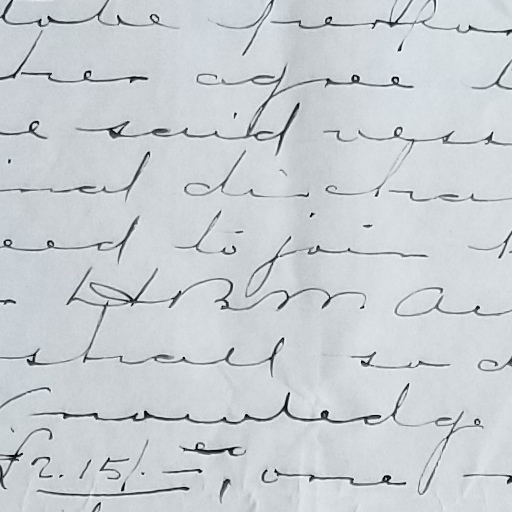 to be perfor
ther agree t
e said vess
inal dischar
eed to join t
HBM Au
shall so d
knowledge
£2.15/.-, one